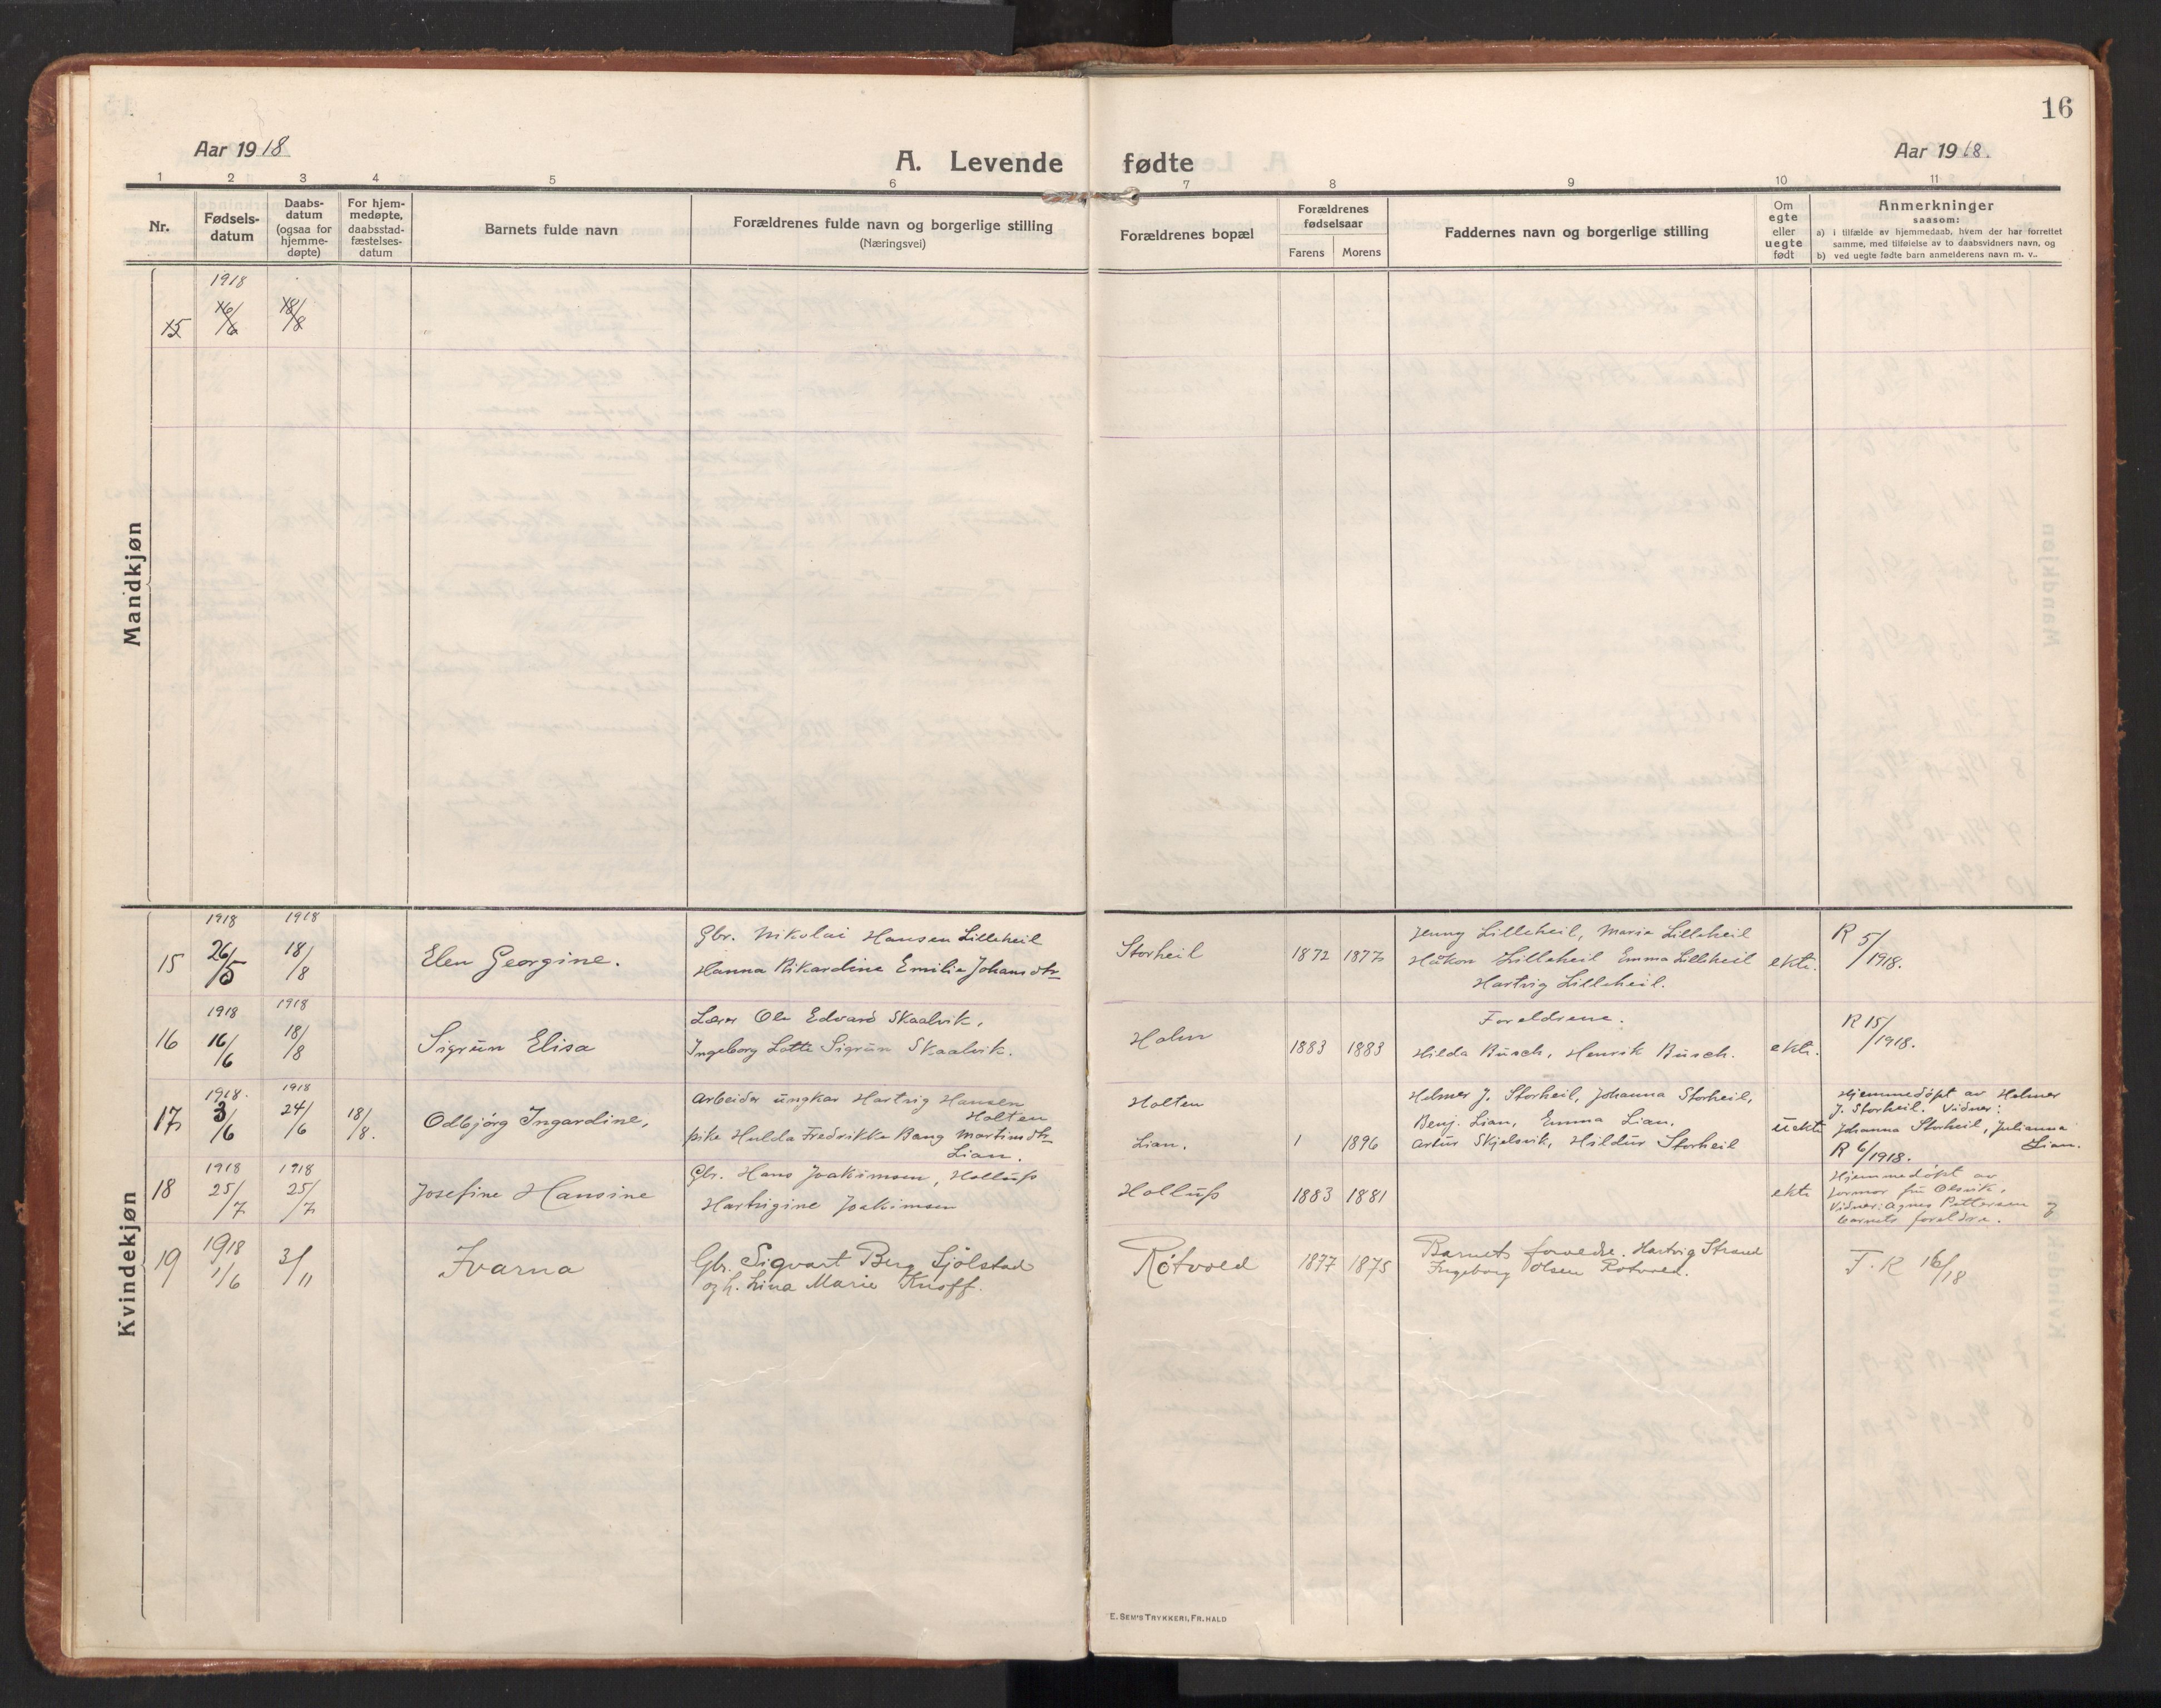 16
Aar 1918
A. Levende fødte
Aar 1918.
1 2 3 4 5 6 7 8 9 10 11
Nr.
Fødsels-
datum
Daabs-
datum
(ogsaa for
hjemme-
døpte)
For hjem-
medøpte,
daabsstad-
fæstelses-
datum
Barnets fulde navn
Forældrenes fulde navn og borgerlige stilling
(Næringsvei)
Forældrenes bopæl
Forældrenes
fødselsaar
Farens Morens
Faddernes navn og borgerlige stilling
Om
egte
eller
uegte
født
Anmerkninger
saasom:
a) i tilfælde av hjemmedaab, hvem der har forrettet
samme, med tilføielse av to daabsvidners navn, og
b) ved uegte fødte barn anmelderens navn m. v..
Mandkjøn
1918
15 16/6 18/8
Kvindekjøn
1918 1918
15 26/5 18/8
Elen Georgine.
Gbr. Nikolai Hansen Lilleheil
Hanna Rikardine Emilie Johansdtr
Storheil
1872 1877
Jenny Lilleheil, Marie Lilleheil
Håkon Lilleheil Emma Lilleheil
Hartvig Lilleheil.
ekte.
R 5/1918.
1918 1918
16 16/6 18/8
Sigrun Elisa
Lærer Ole Edvard Skaalvik,
Ingeborg Lotte Sigrun Skaalvik.
Holm
1883 1883
Foreldrene.
Hilda Busch, Henrik Busch.
ekte.
R 15/1918.
1918. 1918
17 3/6 24/6 18/8.
Odbjörg Ingardine,
Arbeider ungkar Hartvig Hansen
Holten
pike Hulda Fredrikke Bang Martinsdtr
Lian.
Holten
Lian.
1 1896
Helmer J. Storheil, Johanna Storheil,
Benj. Lian, Emma Lian,
Artur Skjelsvik, Hildur Storheil
uekte
Hjemmedöpt av Helmer
J. Storheil. Vidner:
Johanna Storheil, Julianna
Lian.
R 6/1918.
1918 1918
18 25/7 25/7
Josefine Hansine
Gbr. Hans Joakimsen, Hollup
Hartvigine Joakimsen
Hollup
1883 1881
ekte
Hjemmedöpt av
jormor fru Olsvik,
Vidner: Agnes Pettersen
barnets foreldre.
1918
19 1/6 3/11
Ivarna
Gbr. Sigvart Berg Sjölstad
og h. Lina Marie Knoff.
Røtvold
1877 1875
Barnets forældre. Hartvig Strand
Ingeborg Olsen Rotvold.
F. R 16/18
E. SEM'S TRYKKERI, FR.HALD